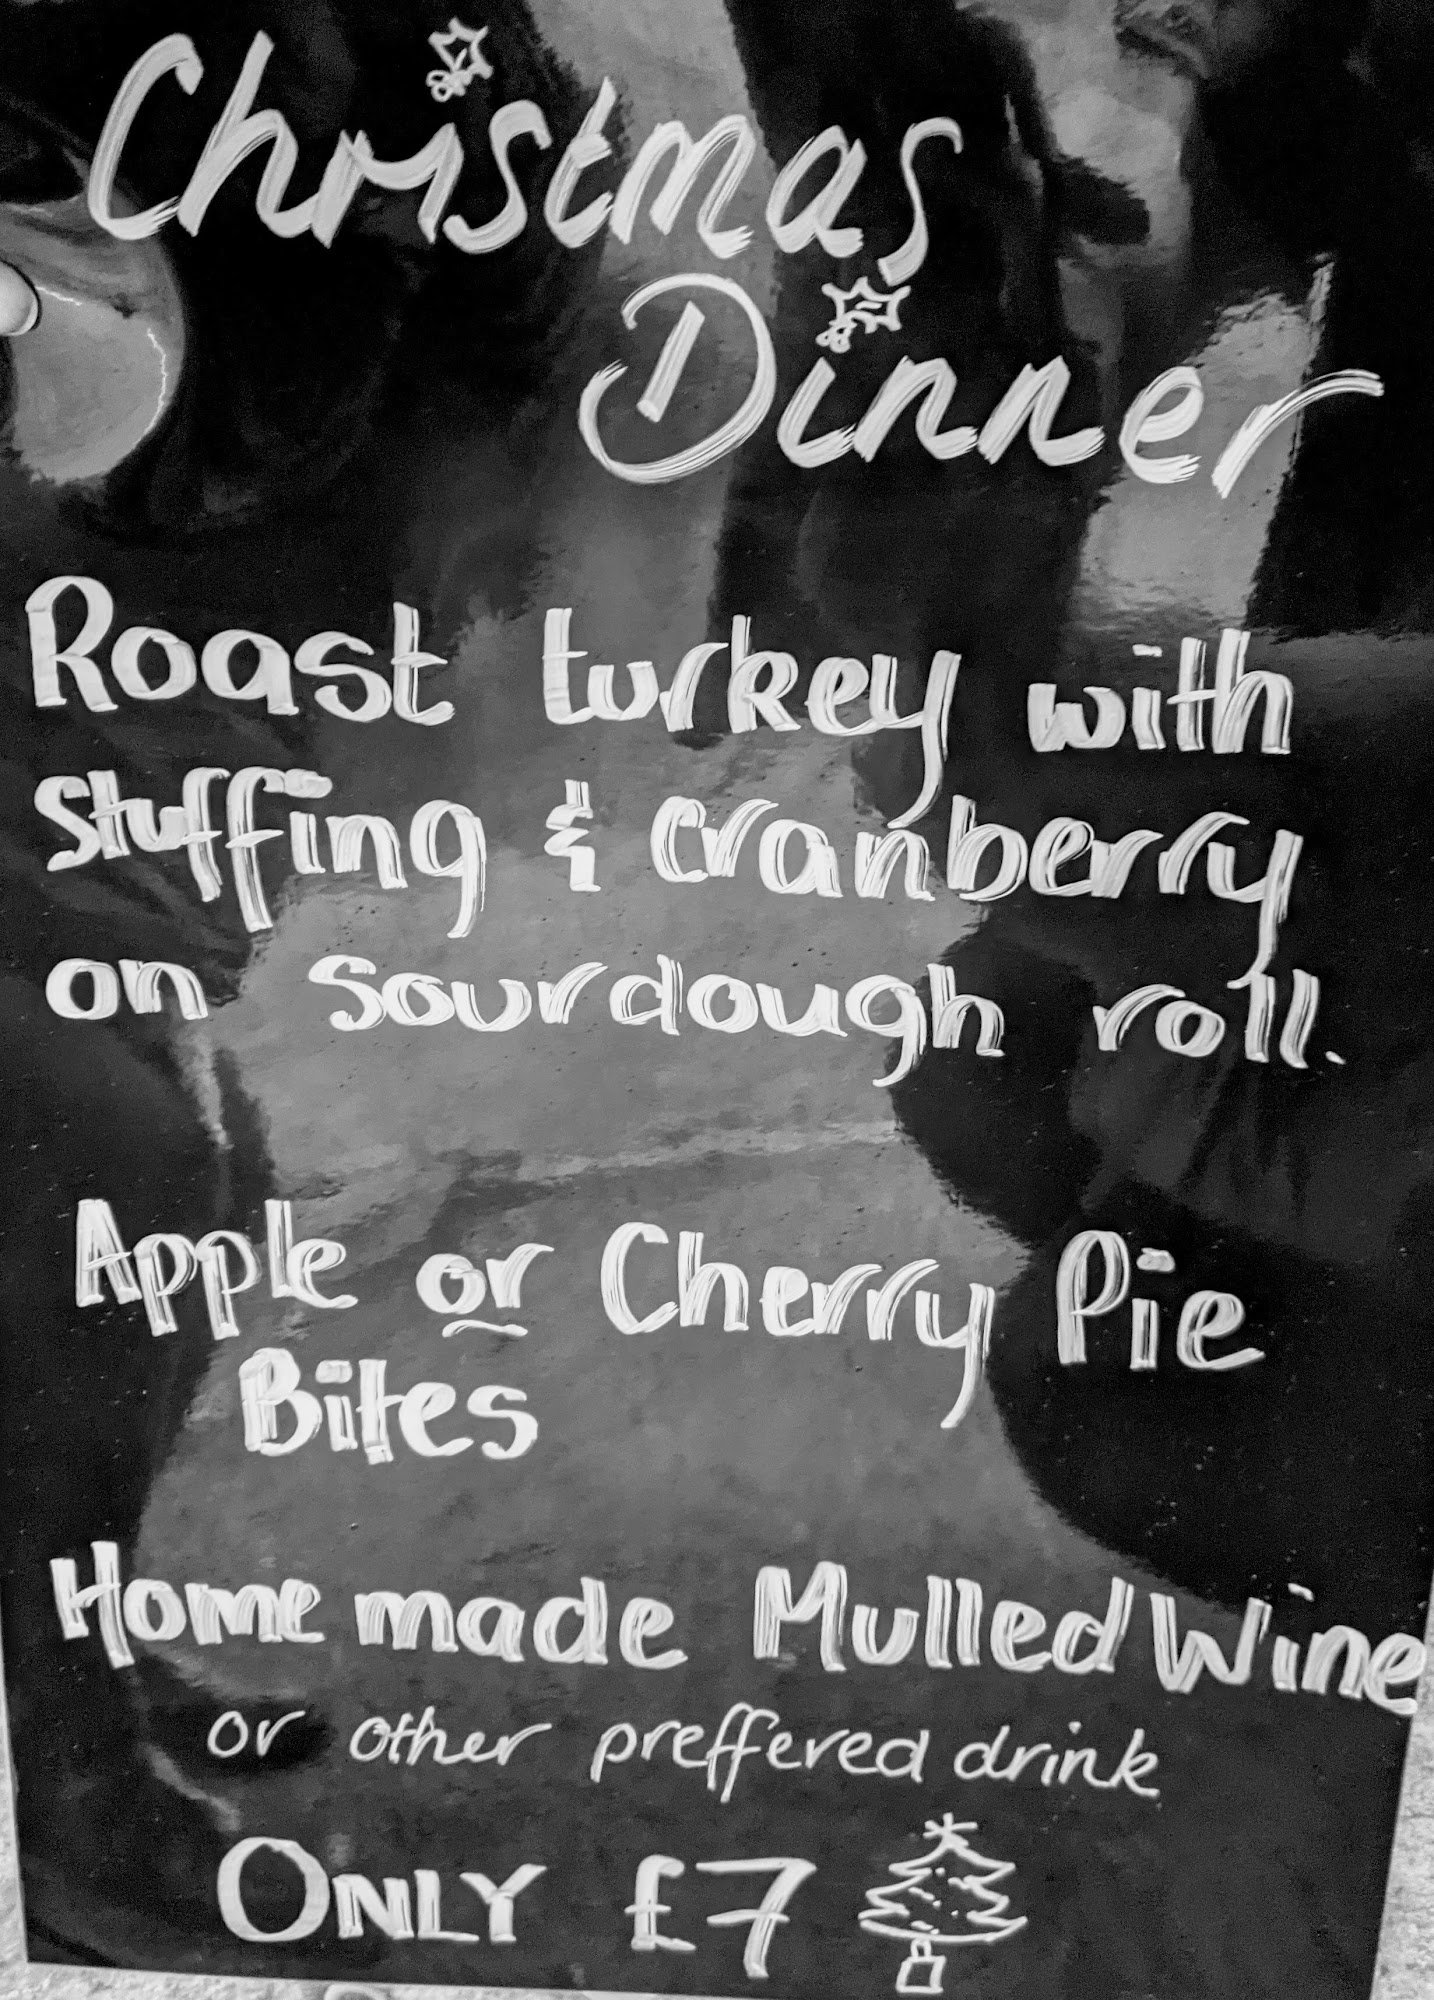 Christmas
Dinner
Roast turkey with
stuffing & cranberry
on sourdough roll.
Apple or Cherry Pie
Bites
Home made Mulled Wine
or other preffered drink
ONLY £7